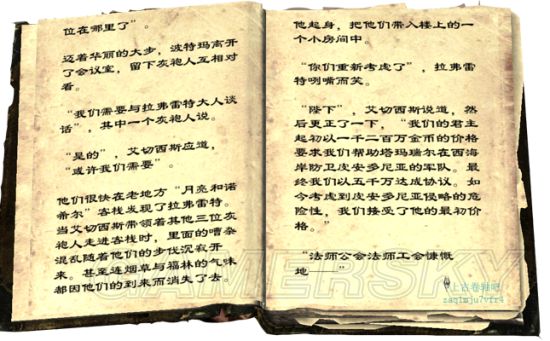 位在哪里了”。
迈着华丽的大步，波特玛离开
了会议室，留下灰袍人互相对
看。
“我们需要与拉弗雷特大人谈
话”，其中一个灰袍人说。
“是的”，艾切西斯应道，
“或许我们需要”。
他们很快在老地方“月亮和诺
希尔”客栈发现了拉弗雷特。
当艾切西斯带领着其他三位灰
袍人走进客栈时，里面的嘈杂
混乱随着他们的步伐沉寂开
来。甚至连烟草与福林的气味
都因他们的到来而消失了去。
他起身，把他们带入楼上的一
个小房间中。
“你们重新考虑了”，拉弗雷
特咧嘴而笑。
“陛下”，艾切西斯说道，然
后更正了一下，“我们的君主
起初以一千二百万金币的价格
要求我们帮助塔玛瑞尔在西海
岸防卫皮安多尼亚的军队。最
终我们以五千万达成协议。如
今考虑到皮安多尼亚侵略的危
险性，我们接受了他的最初价
格。”
“法师公会法师工会慷慨
地——”
GAMERSKY
上古卷轴吧
zaq1mju7vfr4